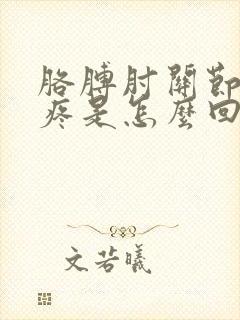 胳膊肘關節
疼是怎麼回
文若曦